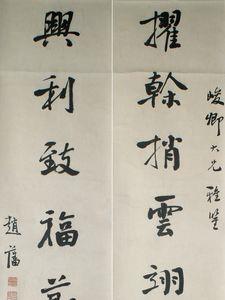 峻卿大兄雅鉴
擢榦捎雲翊
興利致福
趙藩